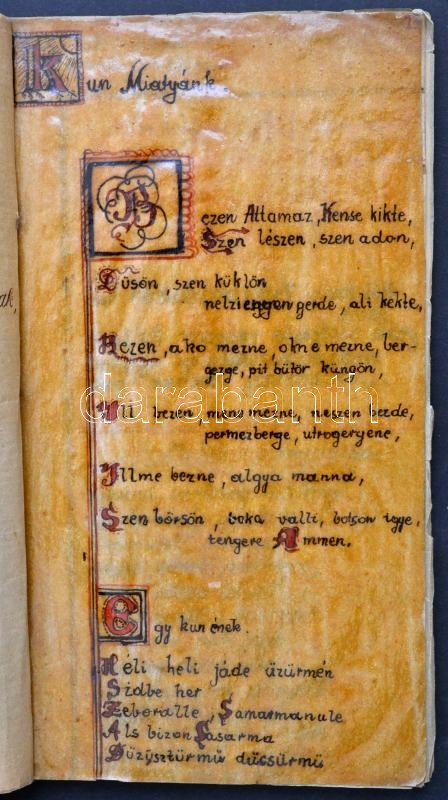 Kun Miatyánk.
Bezen Attamaz, Kense kikte,
Szen lészen, szen adon,
Düsön, szen küklön
nelziengyen gerde, ali kekte,
Bezen, ako mezne, okne mezne, ber-
gezge, pit bütör küngön,
Ill bezen, mene mezne, neszen bezde,
permezberge, utrogergene,
Illme bezne, algya manna,
Szen börsön, boka valli, bolson igye,
tengere Ammen.
Egy kun ének.
Héli heli jáde üzürmén
Szidbe her
Zeboralle, Samarmanule
Als bizon Sasarma
Düzüsztürmü dücsürmü
ak,
darabanth